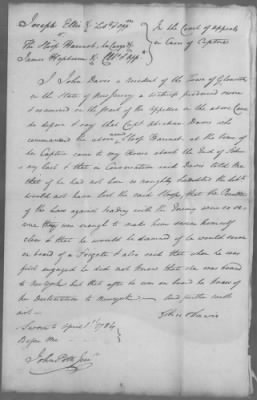 Joseph Ellis & Lib.t App.ts
v
The Sloop Hannah, her Cargo &
James Hepburn & Cl.t App.ee
In the Court of appeals
in Cases of Capture
I John Davis a resident of the Town of Gloucester
in the State of New Jersey a witness produced sworn
& examined on the part of the appellee in the above Cause
do depose & say that Capt Abraham Davis who
commanded the above named Sloop Hannah at the time of
her Capture came to my House about the last of June
& that in Conversation said Davis told me
that if he had not been so roughly handled the
would not have lost the said Sloop, that the Penalties
of the Law against trading with the Enemy were so severe
they was enough to make him swear himself
clear & that he would be damned if he would swear
on board of a Frigate & also said that when he was
first engaged he did not know that she was bound
to New York but that after he was on board he knew of
her Destination to New york And further saith
not
John Davis
Sworn to April 1st 1784
Before me
John Potts Jun.r